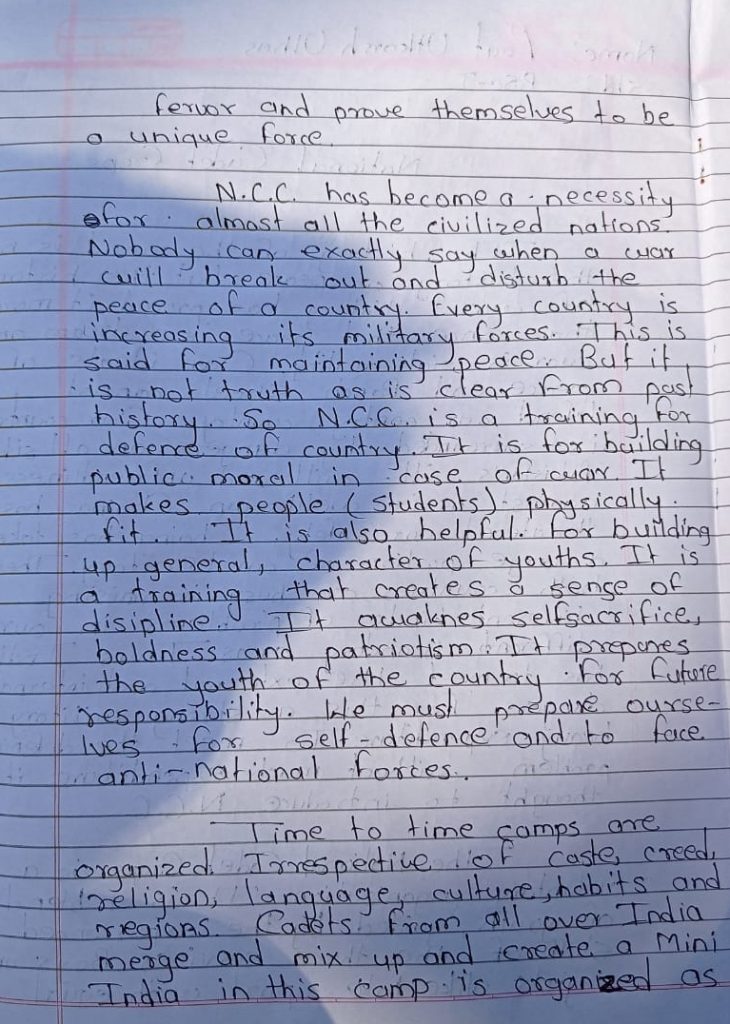 fervor and prove themselves to be
a unique force.
N.C.C. has become a necessity
for almost all the civilized nations.
Nobody can exactly say when a war
will break out and disturb the
peace of a country. Every country is
increasing its military forces. This is
said for maintaining peace. But it
is not truth as is clear from past
history. So N.C.C. is a training for
defence of country. It is for building
public moral in case of war. It
makes people (students) physically
fit. It is also helpful for building
up general, character of youths. It is
a training that creates a sense of
disipline. It awaknes selfsacrifice,
boldness and patriotism. It prepares
the youth of the country for future
responsibility. We must prepare ourse-
lves for self-defence and to face
anti-national forces.
Time to time camps are
organized. Irrespective of caste, creed,
religion, language, culture, habits and
regions. Cadets from all over India
merge and mix up and create a Mini
India in this camp is organized as